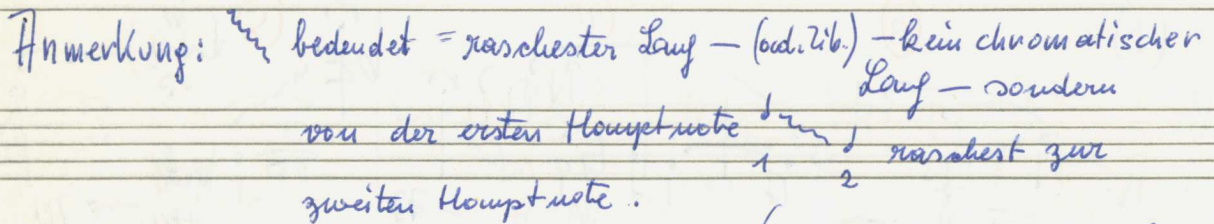 Anmerkung: bedeudet = raschester Lauf — (ad. lib.) — kein chromatischer
Lauf — sondern
von der ersten Hauptnote 1 2 raschest zur
zweiten Hauptnote.